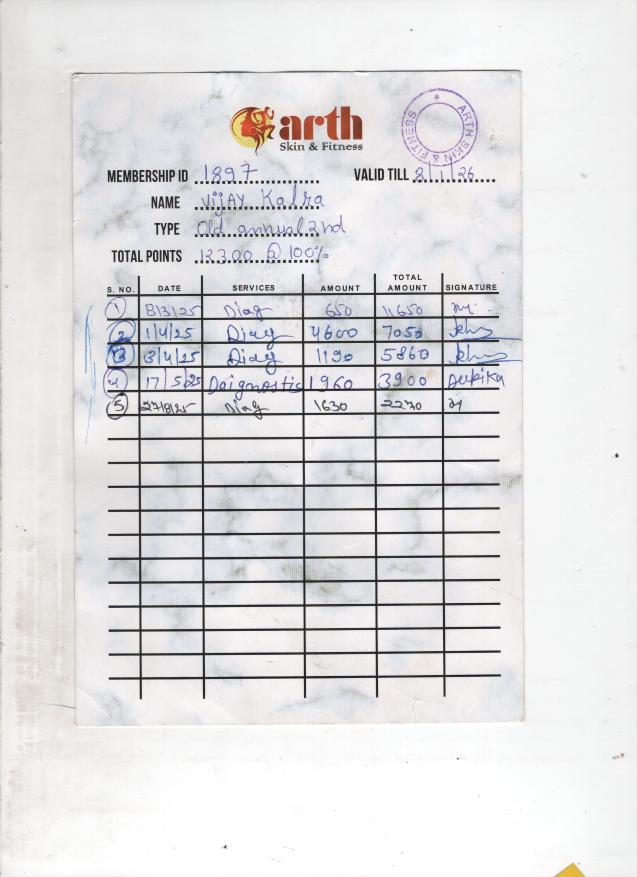 arth
Skin & Fitness
ARTH SKIN & FITNESS
MEMBERSHIP ID 1897 VALID TILL 8/1/26
NAME Vijay Kalra
TYPE Old annual 2nd
TOTAL POINTS 12300 @ 100%
S. NO. DATE SERVICES AMOUNT TOTAL AMOUNT SIGNATURE
1 8/3/25 Diag 650 11650
2 1/4/25 Diag 4600 7050
3 3/4/25 Diag 1190 5860
4 17/5/25 Daignostic 1960 3900
5 Diag 1630 2270